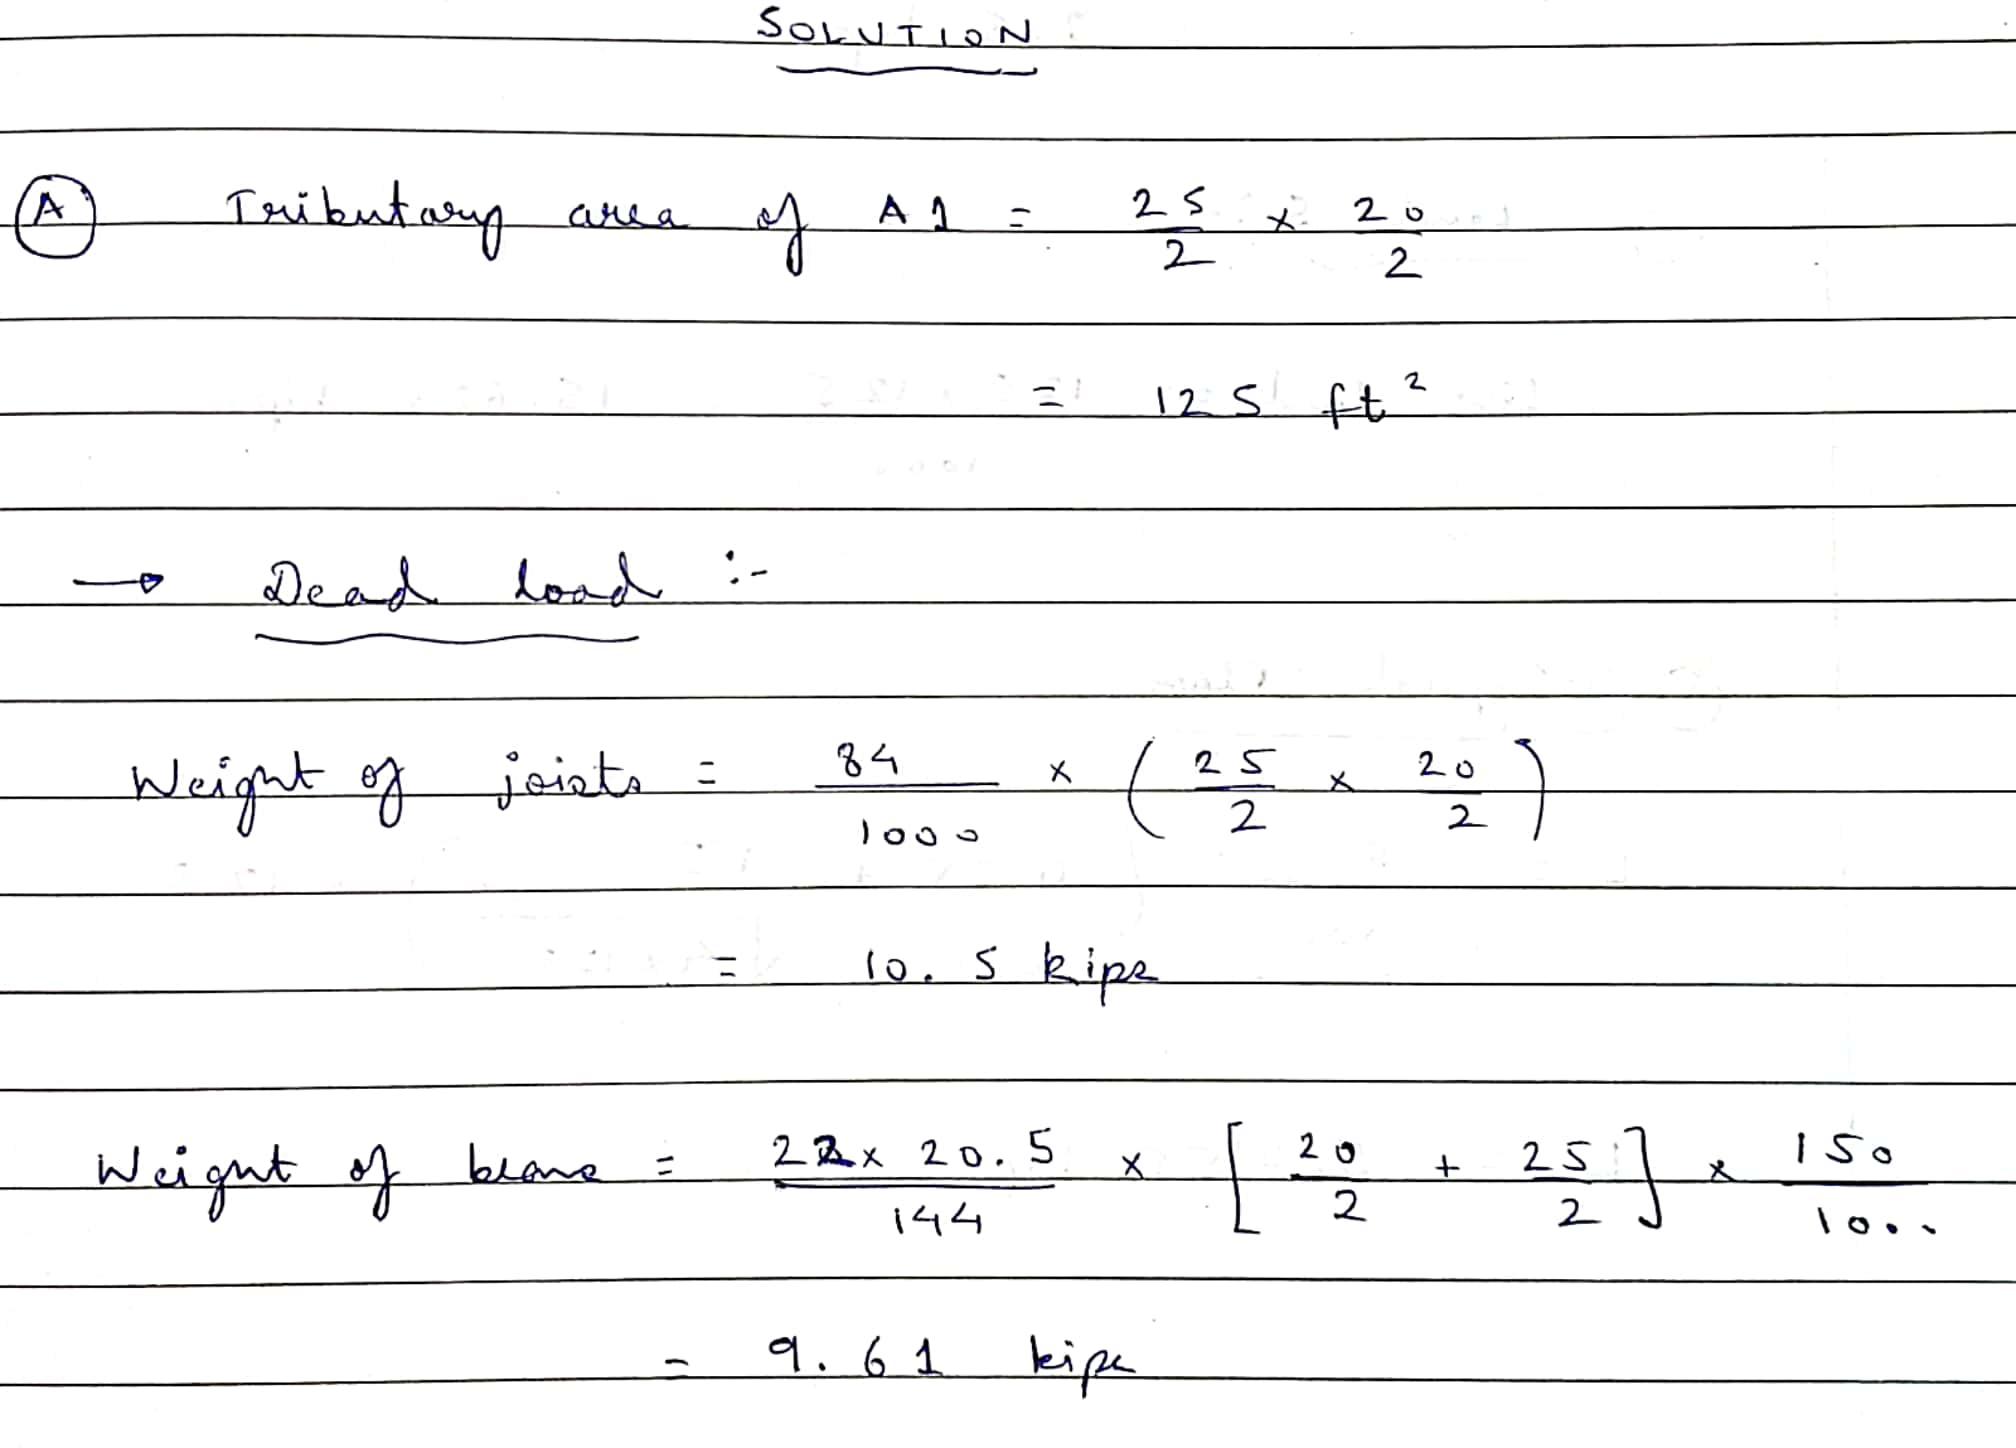 SOLUTION :
(A) Tributary area of A1 = 25/2 x 20/2
= 125 ft²
→ Dead load :-
Weight of joists = 84/1000 x ( 25/2 x 20/2 )
= 10.5 kips
Weight of beams = 22 x 20.5/144 x [ 20/2 + 25/2 ] x 150/1000
= 9.61 kips